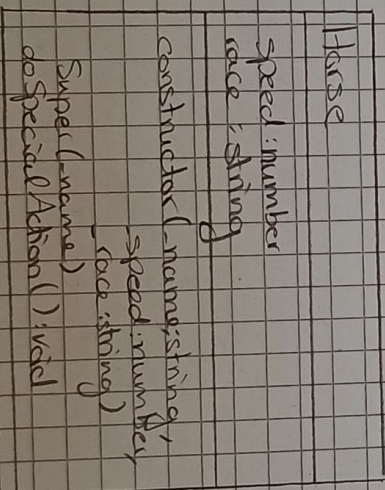 Horse
speed: number
race: string
constructor(_name:string,
_speed:number,
_race:string)
Super(_name)
doSpecialAction():void